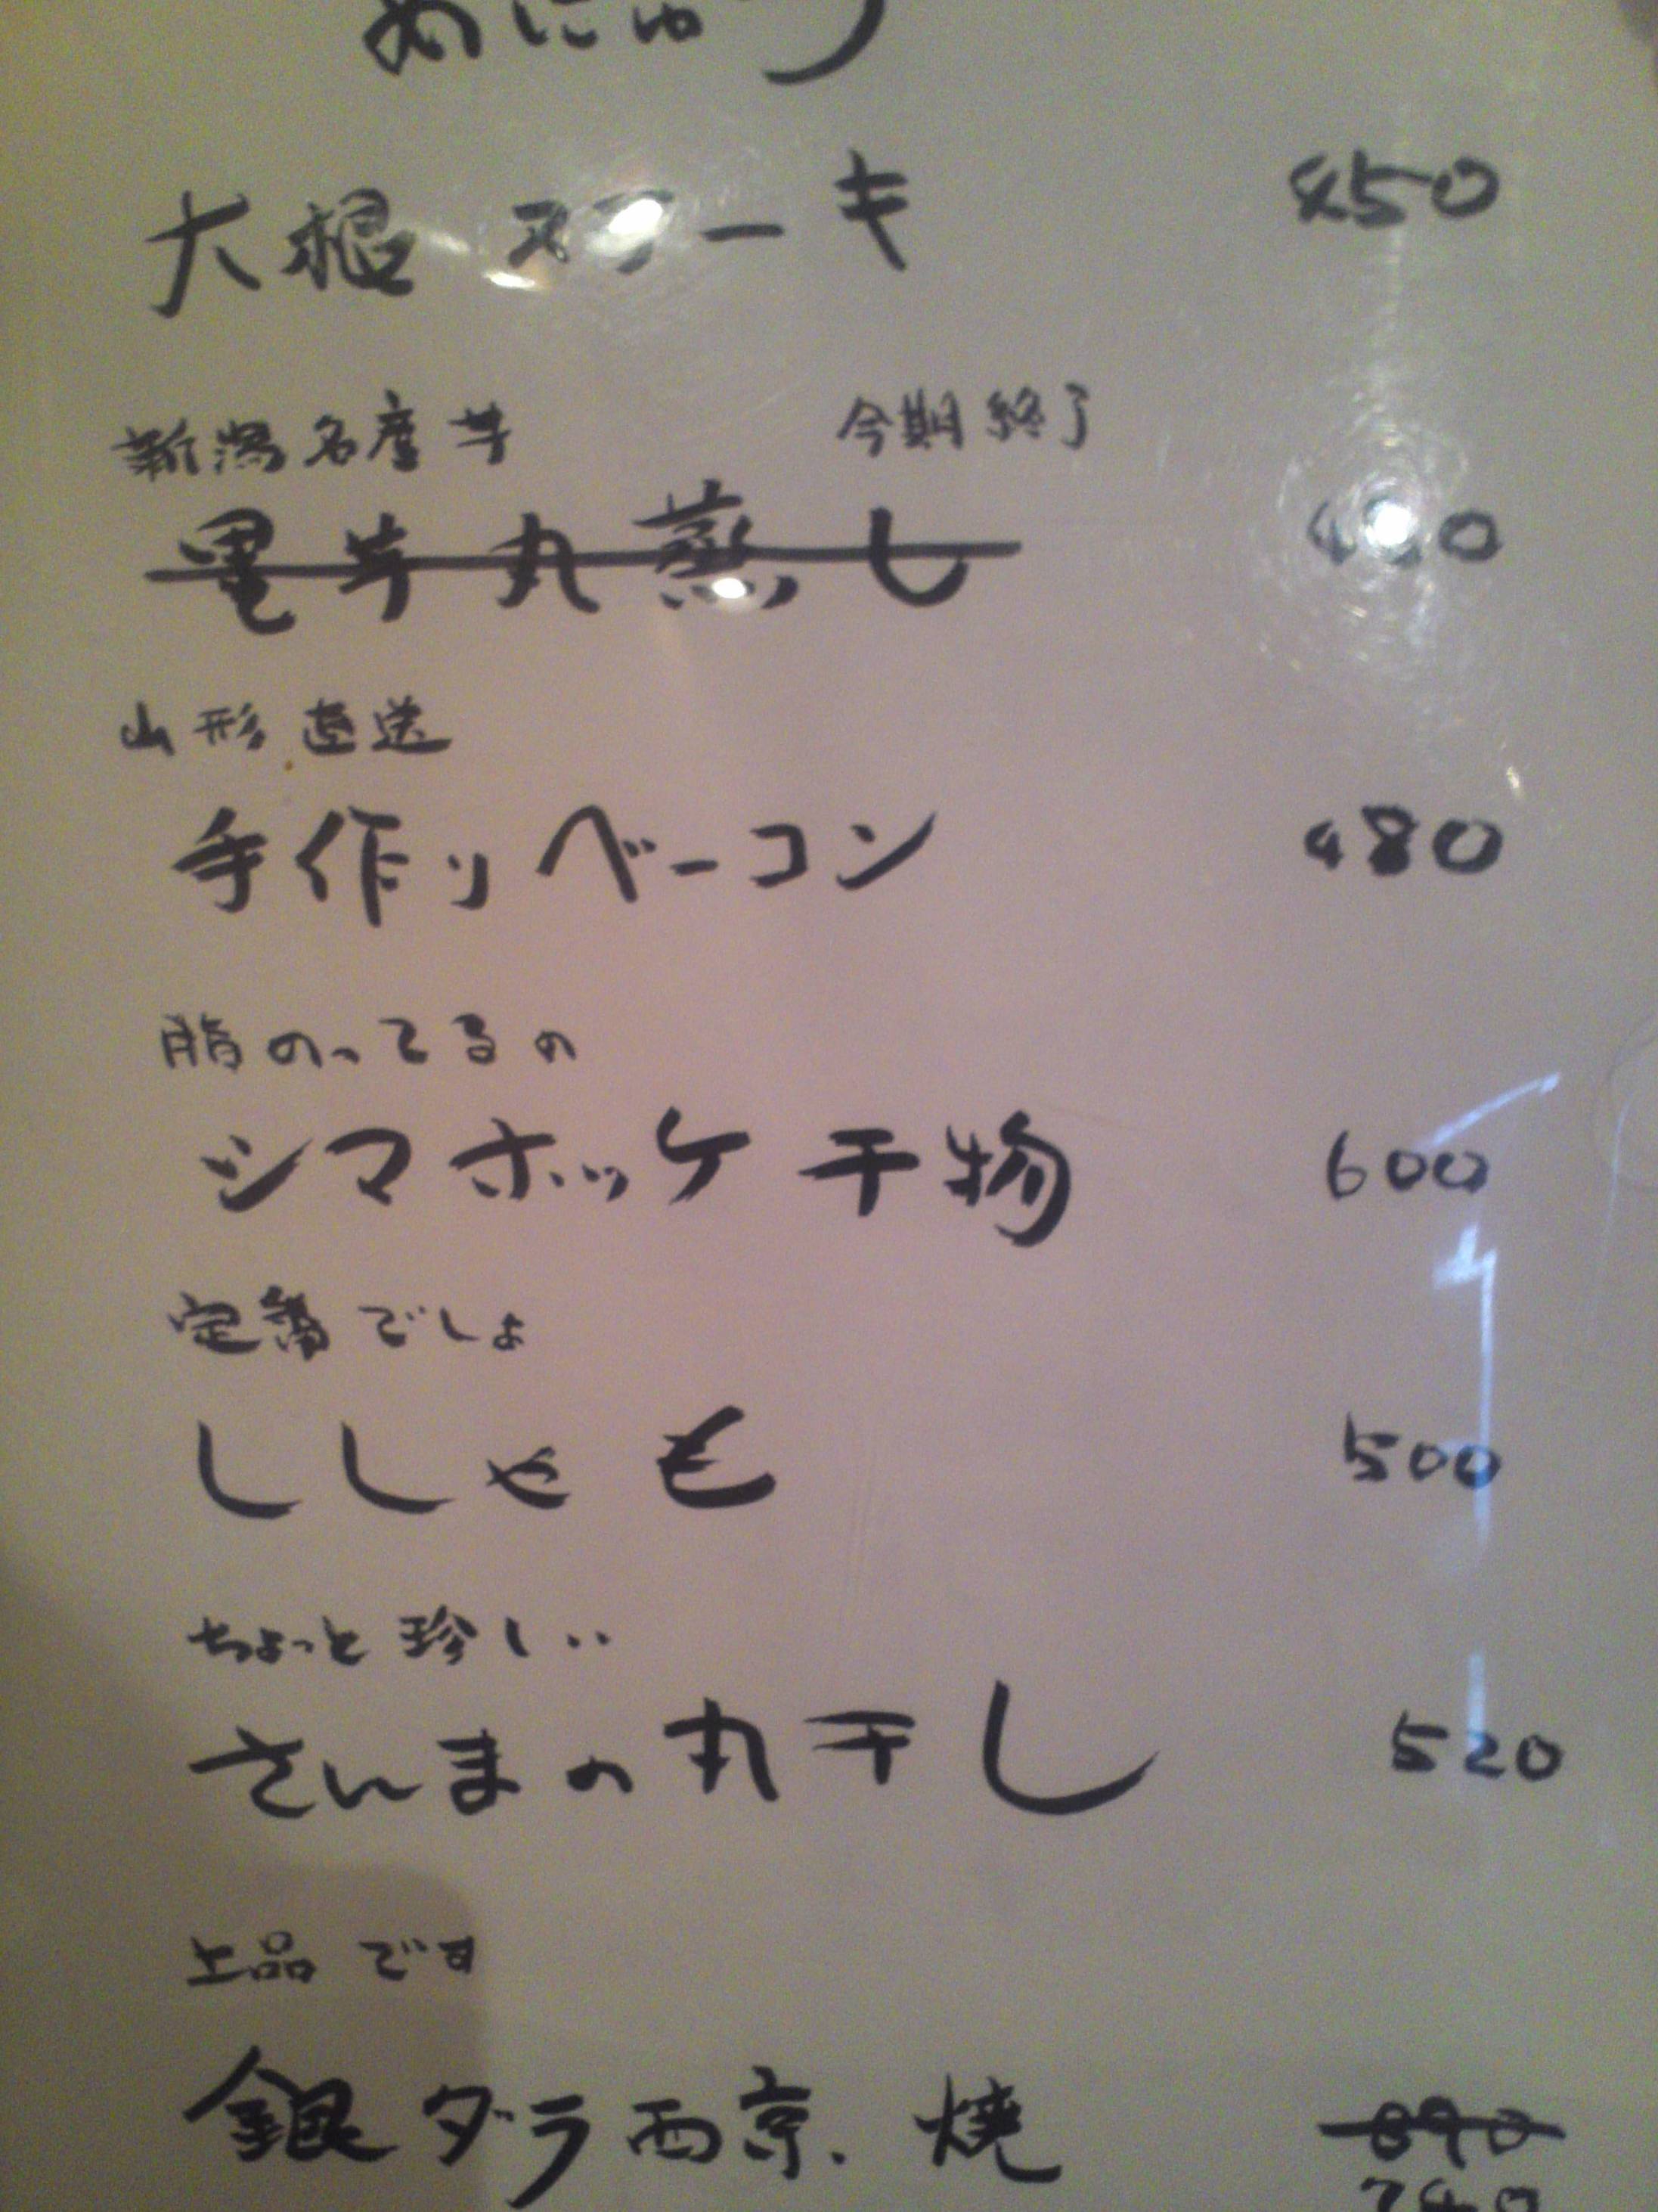 めにゅう
大根ステーキ 450
新潟名産芋 今期終了
里芋丸蒸し
山形直送
手作りベーコン 480
脂のってるの
シマホッケ干物 600
定番でしょ
ししゃも 500
ちょっと珍しい
さんまの丸干し 520
上品です
銀ダラ西京焼 890
740